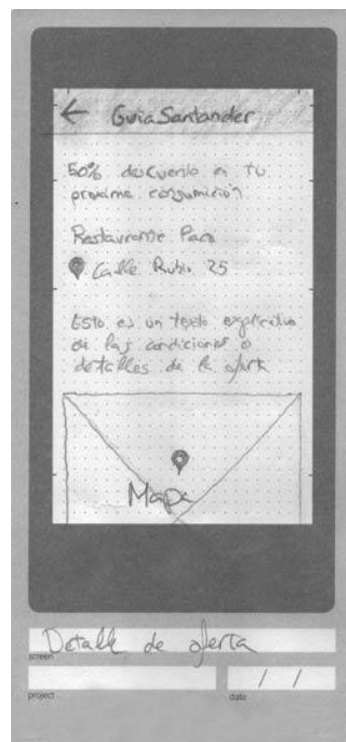 ← Guia Santander
50% descuento en tu
proxima consumición
Restaurante Paco
Calle Rubio 25
Esto es un texto explicativo
de las condiciones o
detalles de la oferta
Mapa
Detalle de oferta
screen
project
date
/ /